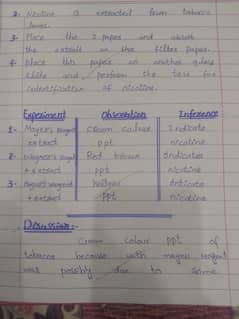 2. Nicotine is extracted from tobacco
leaves.
3. Place the 2 papers and absorb
the extract on the filter paper.
4. Place this papers on another glass
slide and perform the test for
indentification of nicotine.
Experiment Observation Inference
1- Mayer's reagent Cream colour Indicate
extract ppt nicotine
2- Wagner's reagent Red brown Indicates
+ extract ppt nicotine
3- reagent Yellow Indicate
+ extract ppt nicotine
Discussion:-
Cream colour ppt of
tobacco because with mayers reagent
was due to some